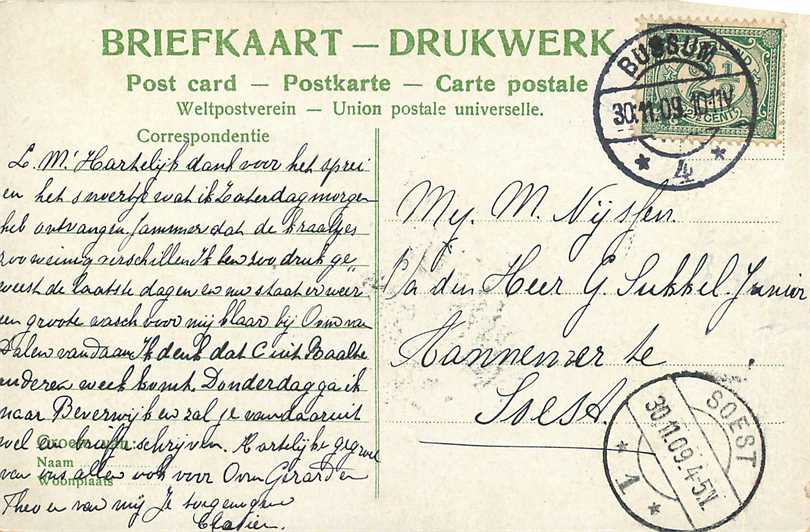 BRIEFKAART — DRUKWERK
Post card — Postkarte — Carte postale
Weltpostverein — Union postale universelle.
Correspondentie
L. M. Hartelijk dank voor het sprei
en het snoertje wat ik Zaterdagmorgen
heb ontvangen. Jammer dat de kraaltjes
zoo weinig verschillen Ik ben zoo druk ge
weest de laatste dagen en nu staat er weer
een groote wasch voor mij klaar bij Oom van
Dalen vandaan Ik denk dat C uit
anderen week komt. Donderdag ga ik
naar Beverwijk en zal je vandaaruit
wel een brief schrijven. Hartelijke
van ons allen ook voor Oom Gerard en
Theo en van mij Je
Groeten van:
Naam
Woonplaats
BUSSUM
30.11.09. 10-11V
4
CENT
Mej. M. Nijssen.
p/a den Heer G. Sukkel. Junior
te
Soest.
SOEST
30.11.09. 4-5N.
1